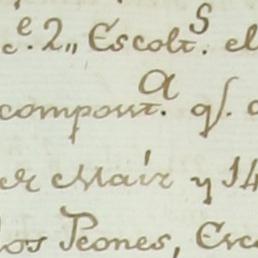 c.e 2,, Escolt.s el
compowt.a q.
er Maiz y 14
los Peones, Esc